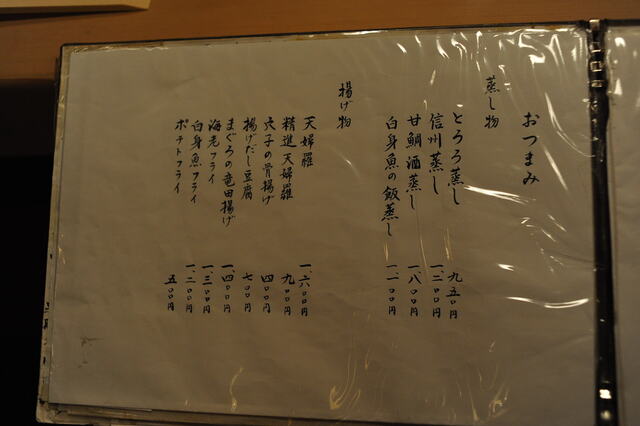 おつまみ
蒸し物
とろろ蒸し 九五〇円
信州蒸し 一、二〇〇円
甘鯛酒蒸し 一、八〇〇円
白身魚の飯蒸し 一、一〇〇円
揚げ物
天婦羅 一、六〇〇円
精進天婦羅 九〇〇円
穴子の骨揚げ 四〇〇円
揚げだし豆腐 七〇〇円
まぐろの竜田揚げ 一、四〇〇円
海老フライ 一、三〇〇円
白身魚フライ 一、二〇〇円
ポテトフライ 五〇〇円